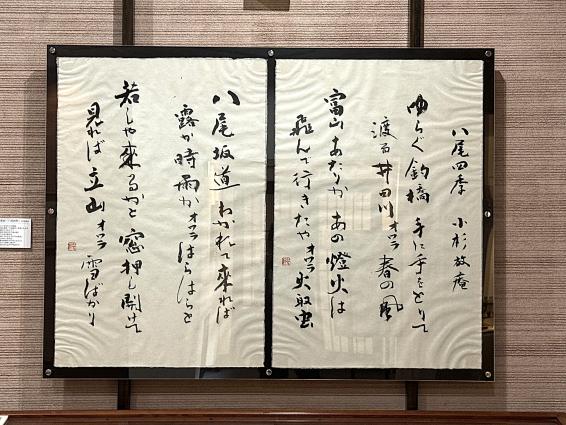 八尾四季 小杉放庵
ゆらぐ釣橋 手に手をとりて
渡る井田川 オワラ 春の風
富山あたりか あの燈火は
飛んで行きたや オワラ 火取虫
八尾坂道 わかれて来れば
露か時雨か オワラ はらはらと
若しや来るかと 窓押し開けて
見れば立山 オワラ 雪ばかり